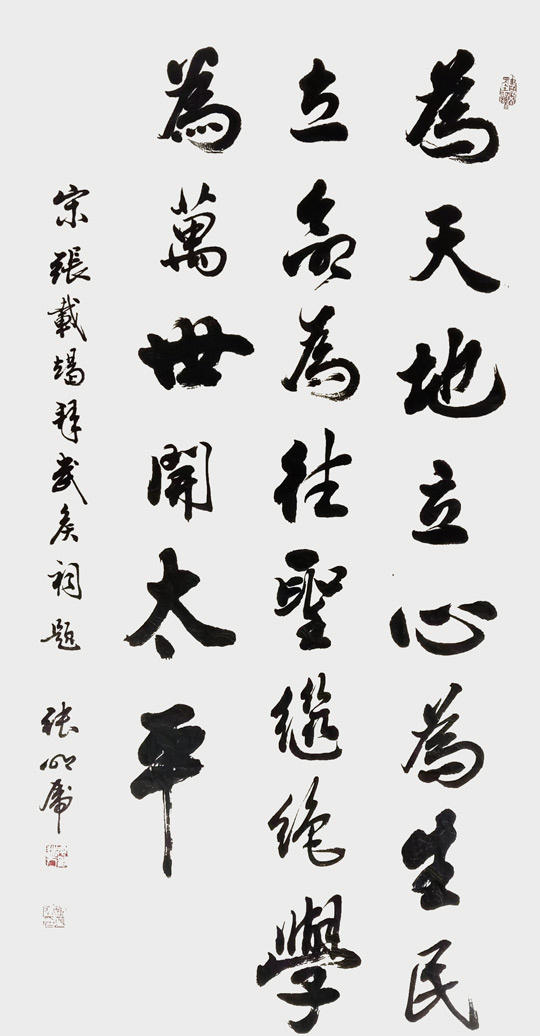 為天地立心為生民
立命為往聖繼絕學
為萬世開太平
宋張載謁拜武侯祠題
張